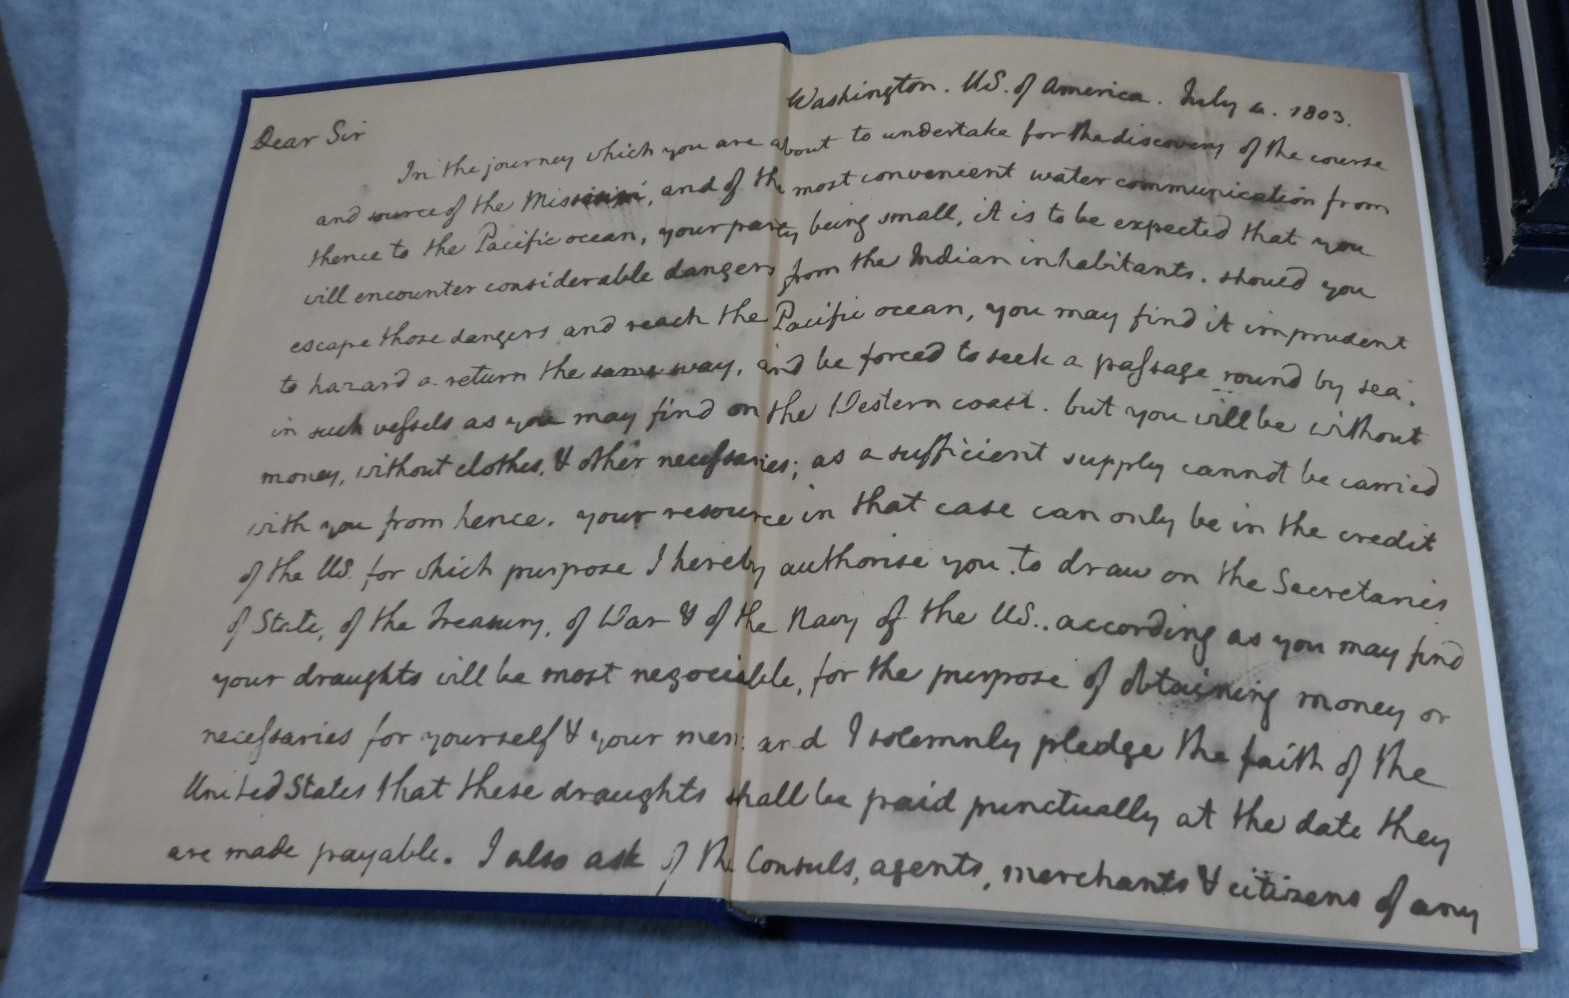 Washington. US. of America. July 4. 1803.
Dear Sir
In the journey which you are about to undertake for the discovery of the course
and source of the Missisipi, and of the most convenient water communication from
thence to the Pacific ocean, your party being small, it is to be expected that you
will encounter considerable dangers from the Indian inhabitants. should you
escape those dangers and reach the Pacific ocean, you may find it imprudent
to hazard a return the same way, and be forced to seek a passage round by sea,
in such vessels as you may find on the Western coast. but you will be without
money, without clothes, & other necessaries; as a sufficient supply cannot be carried
with you from hence. your resource in that case can only be in the credit
of the US. for which purpose I hereby authorise you to draw on the Secretaries
of State, of the Treasury, of War & of the Navy of the US. according as you may find
your draughts will be most negociable, for the purpose of obtaining money or
necessaries for yourself & your men: and I solemnly pledge the faith of the
United States that these draughts shall be paid punctually at the date they
are made payable. I also ask of the Consuls, agents, merchants & citizens of any